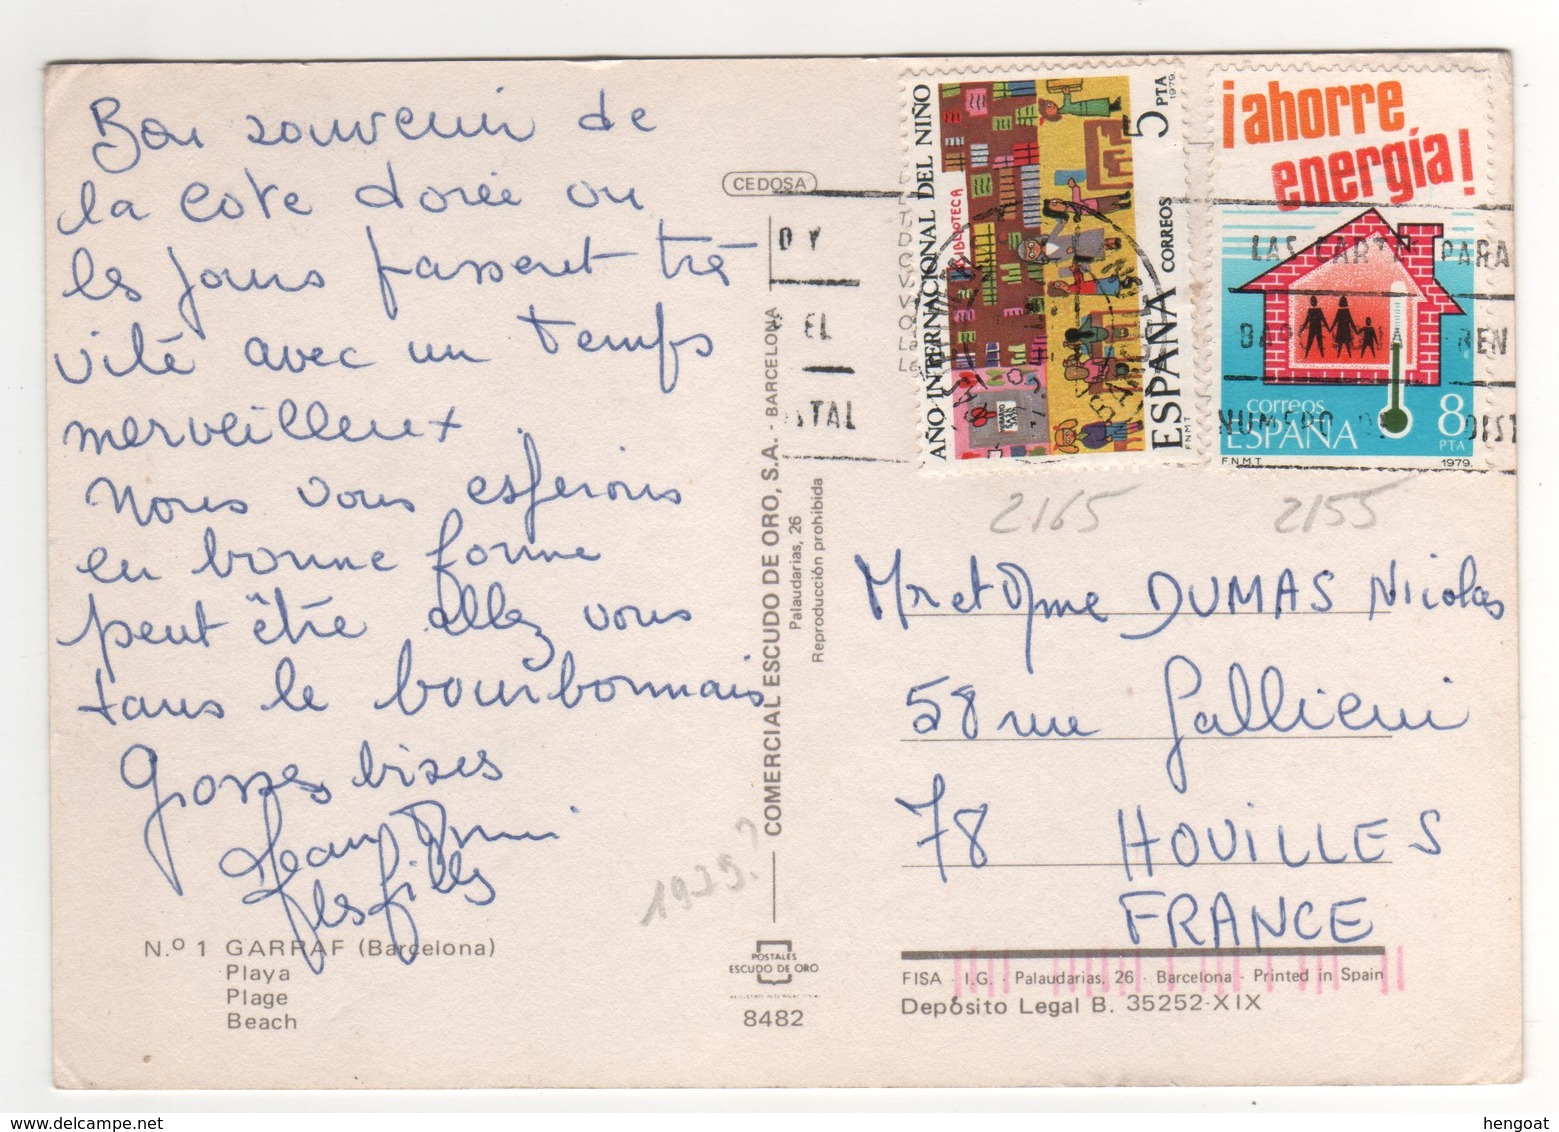 Bon souvenir de
la cote dorée ou
les jours passent trè
vite avec un temps
merveilleux.
Nous vous espérons
en bonne forme
peut être allez vous
dans le bourbonnais
Grosses bises
Jean
les filles
N.º 1 GARRAF (Barcelona)
Playa
Plage
Beach
CEDOSA
COMERCIAL ESCUDO DE ORO, S.A. - BARCELONA
Palaudarias, 26
Reproducción prohibida
POSTALES
ESCUDO DE ORO
8482
AÑO INTERNACIONAL DEL NIÑO
BIBLIOTECA
5 PTA
1979
CORREOS
ESPAÑA
F.N.M.T
¡ahorre
energía!
correos
ESPAÑA
8
PTA
F.N.M.T
1979.
D Y
EL
STAL
LAS CART PARA
BARCELONA
NUMERO DE DIST
2165
2155
Mr et Mme DUMAS Nicolas
58 rue Gallieni
78 HOUILLES
FRANCE
1979?
FISA - I.G. - Palaudarias, 26 - Barcelona - Printed in Spain
Depósito Legal B. 35252-XIX
hengoat